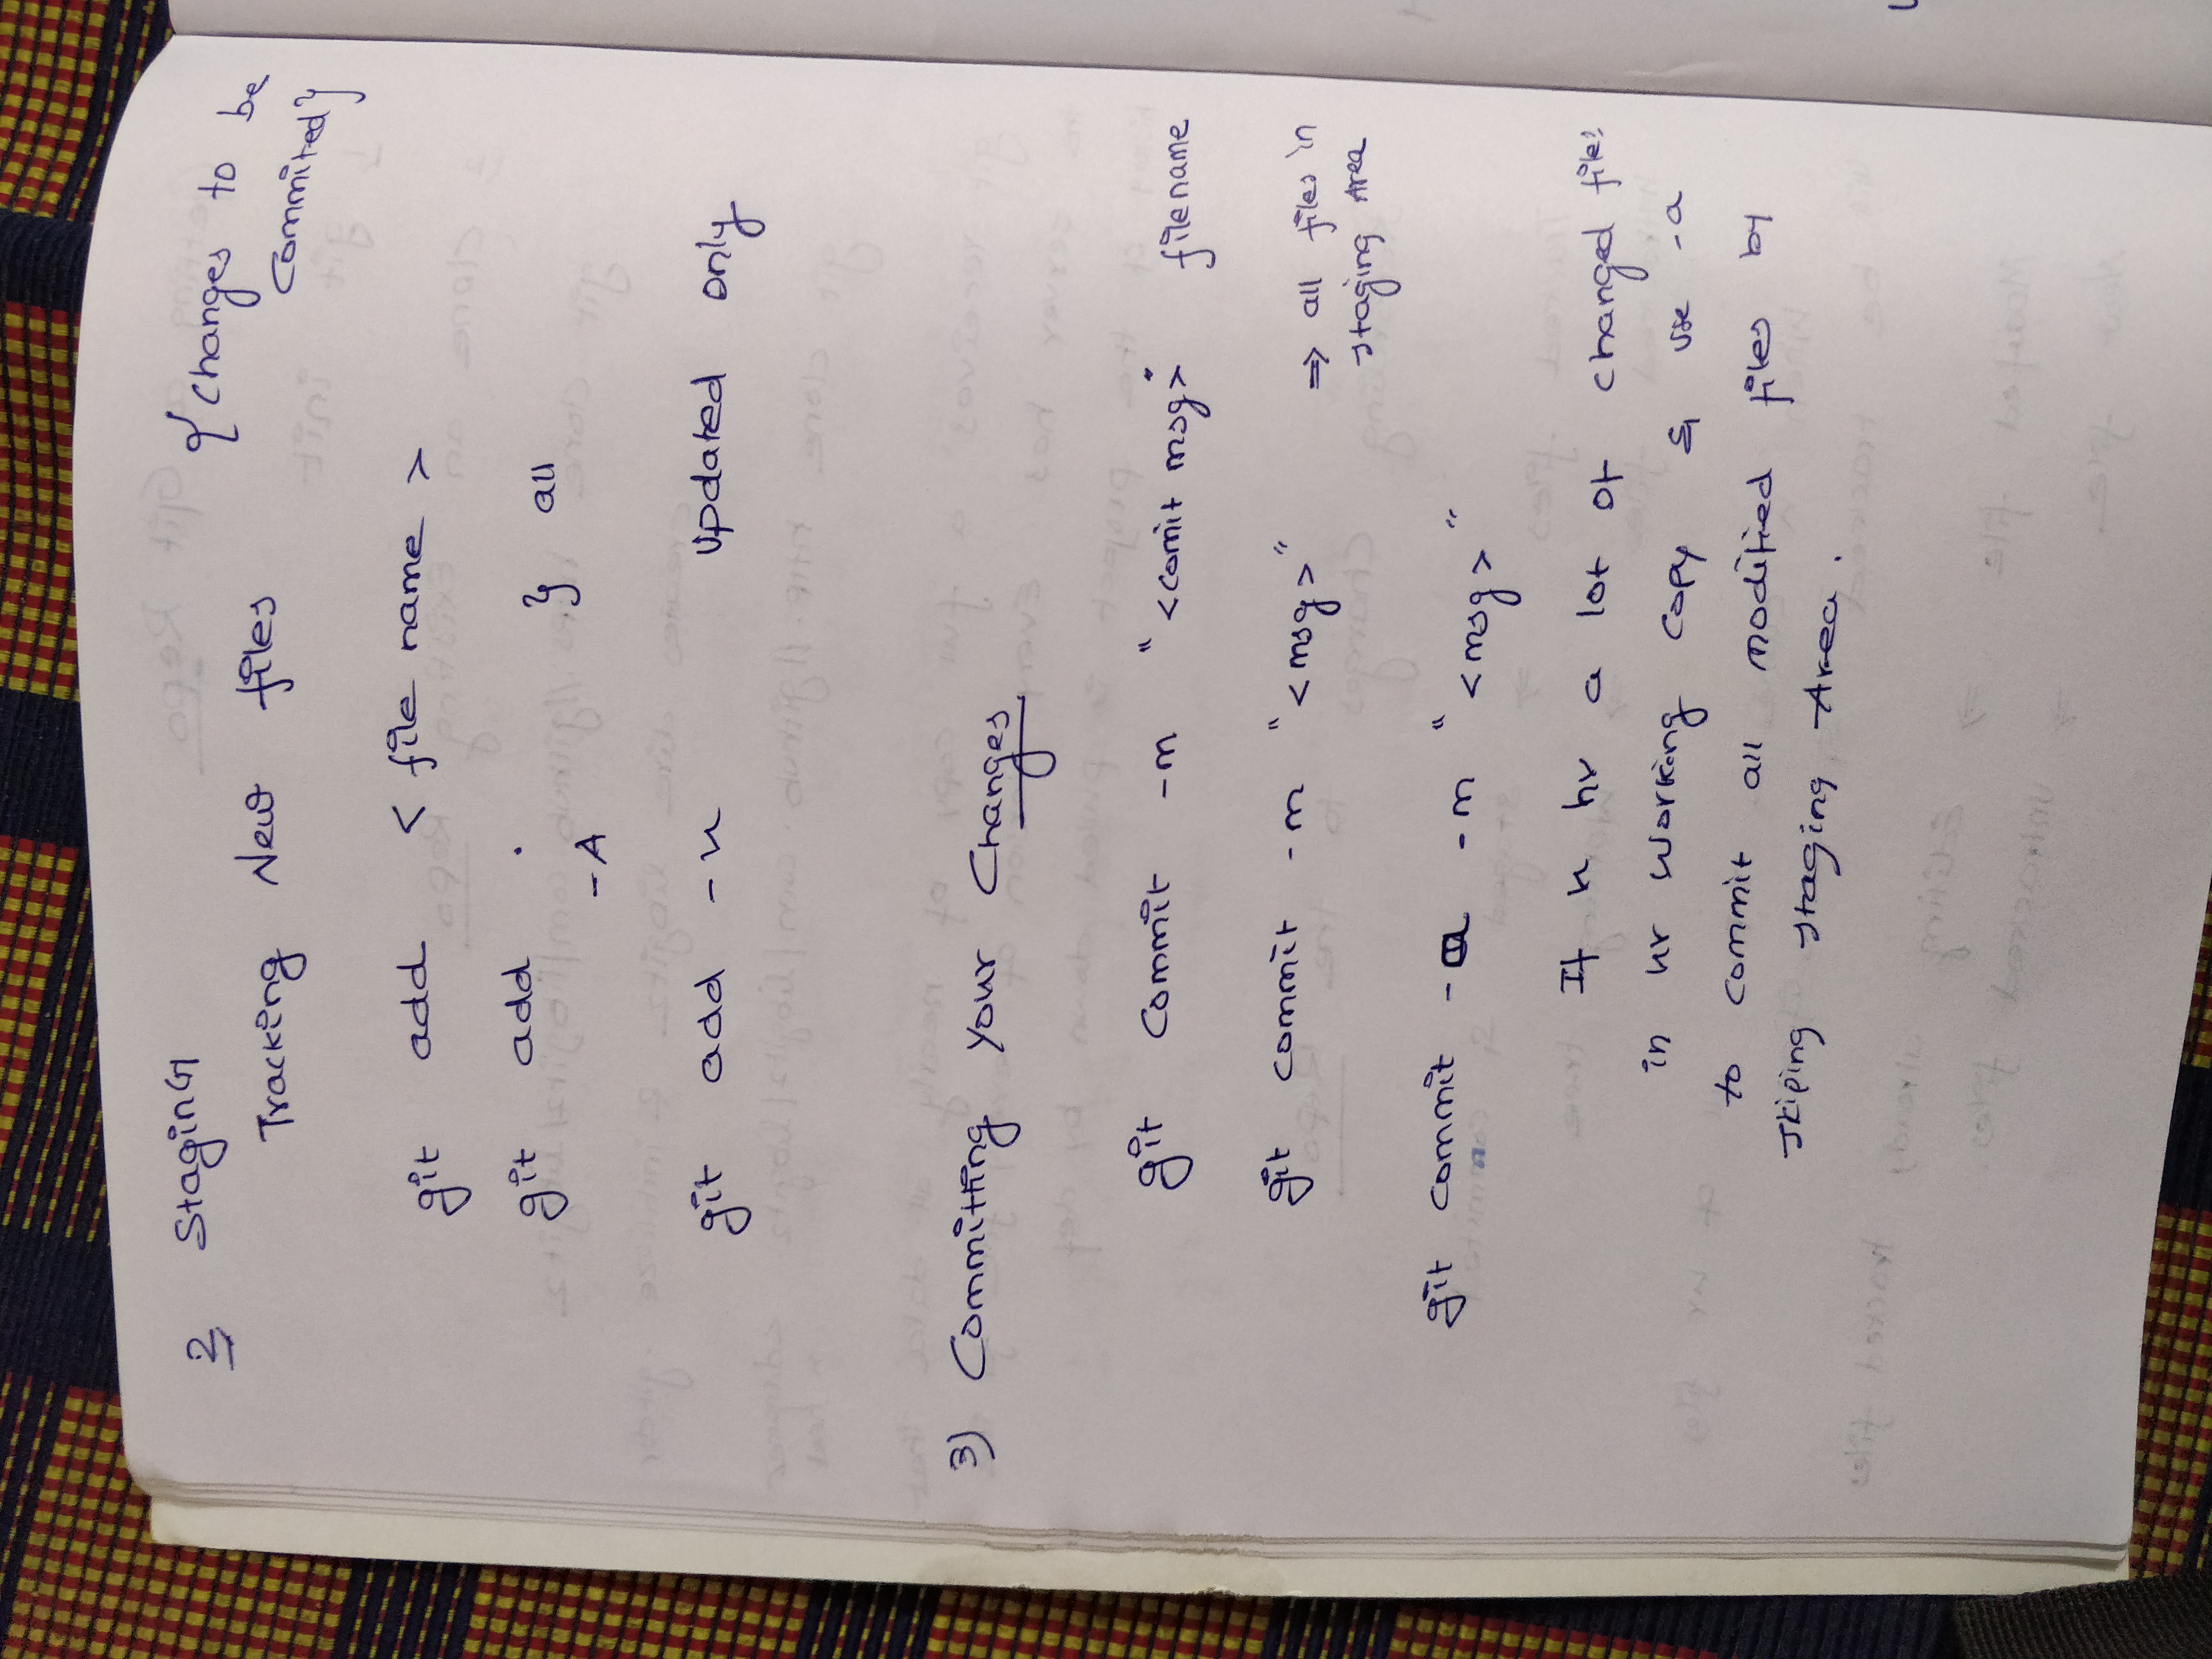 2 Staging {Changes to be
Tracking New files Commited}
git add < file name >
git add . } all
-A
git add -u Updated only
3) Committing Your Changes
git commit -m "<comit msg>" filename
git commit -m "<msg>" => all files in
staging Area
git commit -a -m "<msg>"
If u hv a lot of changed files
in ur working copy & use -a
to commit all modified files by
skiping staging Area.